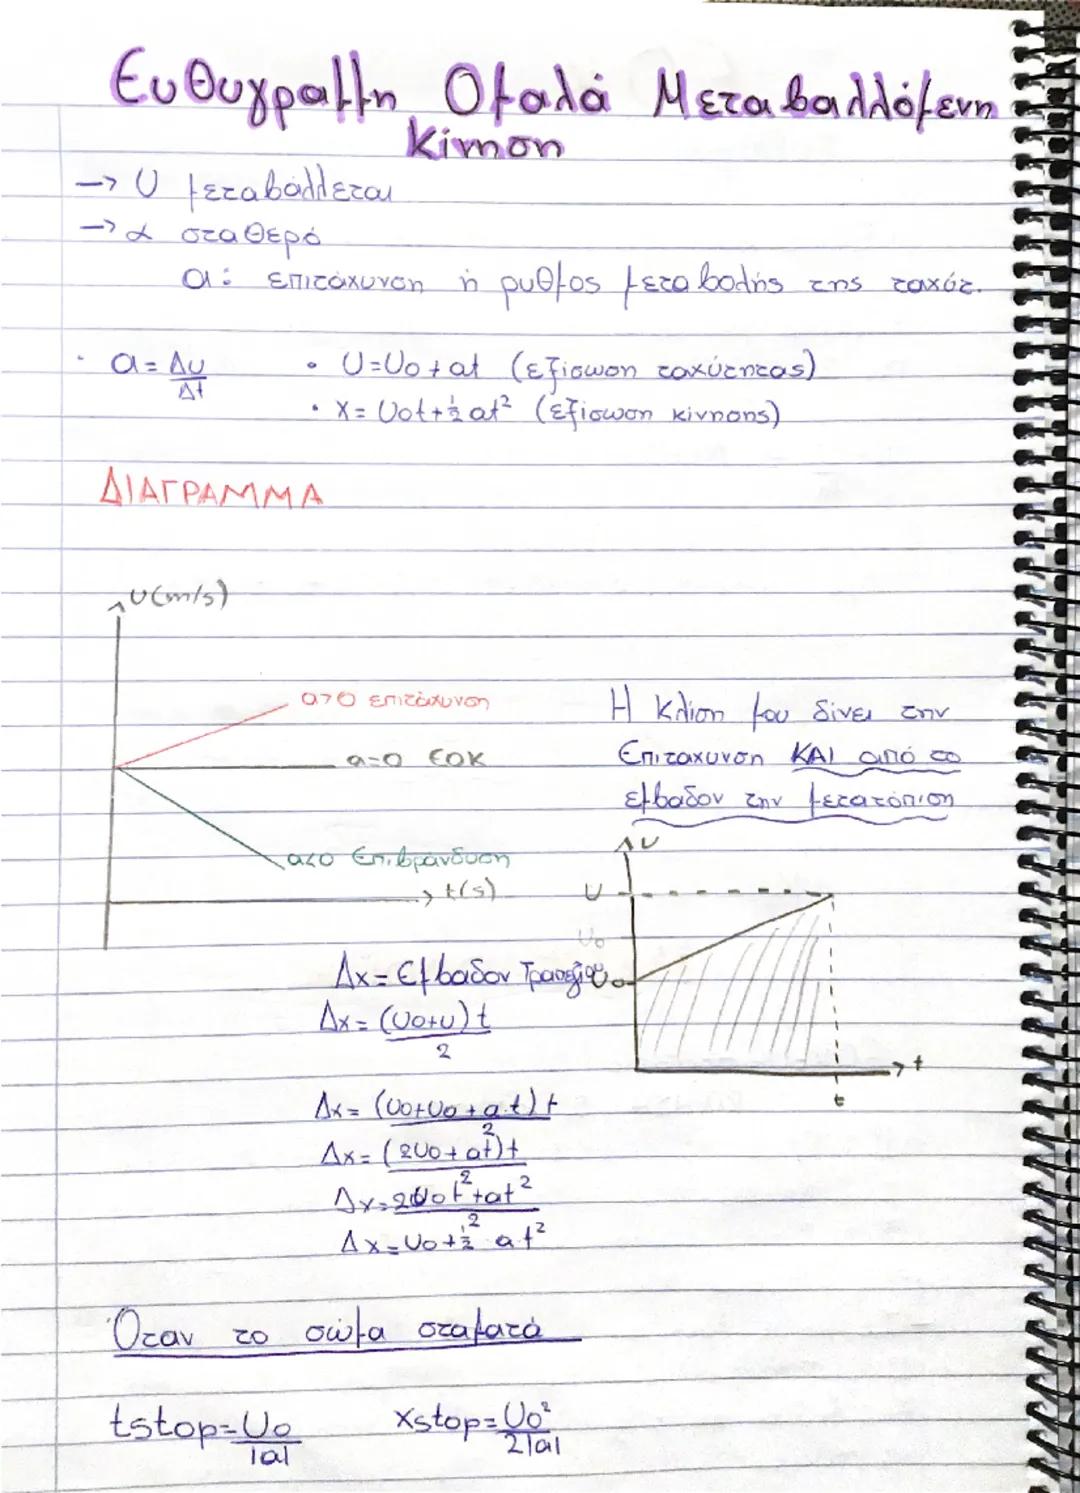 Ευθυγραμμη Ομαλά Μεταβαλλόμενη
Κίνηση
→ υ μεταβάλλεται
→ α σταθερό
α: επιτάχυνση ή ρυθμος μεταβολής της ταχύτ.
· α = Δυ/Δt
• υ=υ₀+at (εξίσωση ταχύτητας)
• x = υ₀t+½at² (εξίσωση κίνησης)
ΔΙΑΓΡΑΜΜΑ
υ(m/s)
α>0 επιτάχυνση
α=0 ΕΟΚ
α<0 Επιβράνδυση
t(s)
Η κλιση μου δίνει την
Επιταχυνση ΚΑΙ από το
εμβαδον την μετατόπιση
υ
υ
υ₀
υ₀
t
t
Δx = Εμβαδον Τραπεζίου
Δx = (υ₀+υ)t/2
Δx = (υ₀+υ₀+a.t)t/2
Δx = (2υ₀+at)t/2
Δx = 2υ₀t+at²/2
Δx = υ₀+½ at²
Όταν το σώμα σταματά
tstop = υ₀/|a|
xstop = υ₀²/2|a|